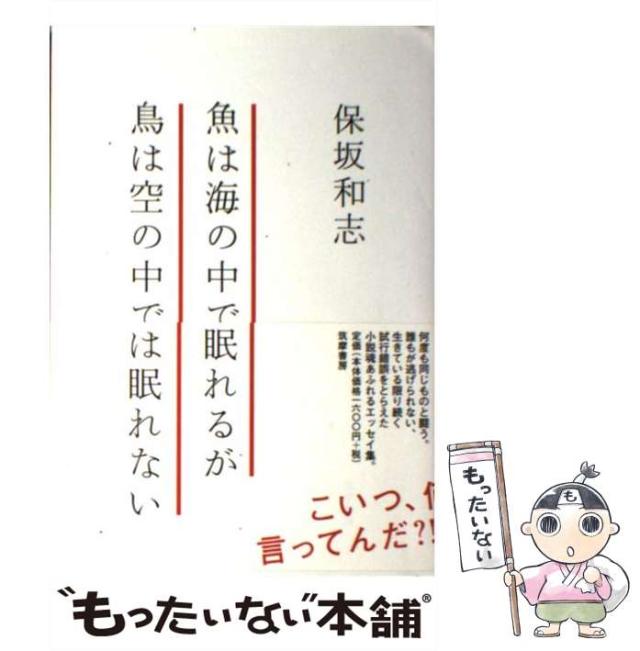 保坂和志
魚は海の中で眠れるが
鳥は空の中では眠れない
何度も同じものと闘う。
誰もが逃げられない、
生きている限り続く
試行錯誤をとらえた
小説魂あふれるエッセイ集。
定価(本体価格一六〇〇円+税)
筑摩書房
こいつ、
言ってんだ?!
も
もったいない
"もったいない"本舗®